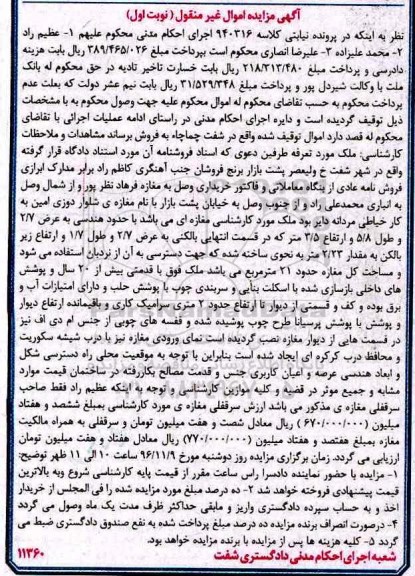 آگهی مزایده اموال غیر منقول ( نوبت اول)
نظر به اینکه در پرونده نیابتی کلاسه ۹۴۰۳۱۶ اجرای احکام مدنی محکوم علیهم ۱- عظیم راد
۲- محمد علیزاده ۳- علیرضا انصاری محکوم است بپرداخت مبلغ ۳۸۹/۴۶۵/۰۲۶ ریال بابت هزینه
دادرسی و پرداخت مبلغ ۲۱۸/۳۱۳/۴۸۰ ریال بابت خسارت تاخیر تادیه در حق محکوم له بانک
ملت با وکالت شیردل پور و پرداخت مبلغ ۳۱/۵۲۹/۳۴۸ ریال بابت نیم عشر دولت که بعلت عدم
پرداخت محکوم به حسب تقاضای محکوم له اموال محکوم علیه جهت وصول محکوم به با مشخصات
ذیل توقیف گردیده است و دایره اجرای احکام مدنی در راستای ادامه عملیات اجرائی با تقاضای
محکوم له قصد دارد اموال توقیف شده واقع در شفت چماچاه به فروش برساند مشاهدات و ملاحظات
کارشناسی: ملک مورد تعرفه طرفین دعوی که اسناد فروشنامه آن مورد استناد دادگاه قرار گرفته
واقع در شهر شفت خ ولیعصر پشت بازار برنج فروشان جنب آهنگری کاظم راد برابر مدارک ابرازی
فروش نامه عادی از بنگاه معاملاتی و فاکتور خریداری وصل به مغازه فرهاد نظر پور و از شمال وصل
به انباری محمدعلی راد و از جنوب وصل به خیابان پشت بازار با نام مغازه ی شلوار دوزی امین به
کار خیاطی مردانه دایر بود ملک مورد کارشناسی مغازه ای می باشد با حدود هندسی به عرض ۲/۷
و طول ۵/۸ و ارتفاع ۳/۵ متر که در قسمت انتهایی بالکنی به عرض ۲/۷ و طول ۱/۷ و ارتفاع زیر
بالکن به مقدار ۲/۲۳ متر به نحوی ساخته شده که جهت دسترسی به آن از نردبان استفاده می شود
و مساحت کل مغازه حدود ۲۱ مترمربع می باشد ملک فوق با قدمتی بیش از ۲۰ سال و پوشش
های داخلی بازسازی شده با اسکلت بنایی و سربندی چوب با پوشش حلب و دارای امتیازات آب و
برق بوده و کف و قسمتی از دیوار تا ارتفاع حدود ۲ متری سرامیک کاری و باقیمانده ارتفاع دیوار
و پوشش با پوشش پرسیانا طرح چوب پوشیده شده و قفسه های چوبی از جنس ام دی اف نیز
در قسمت هایی از دیوار مغازه نصب گردیده است نمای ورودی مغازه نیز با درب شیشه سکوریت
و محافظ درب کرکره ای ایجاد شده است بنابراین با توجه به موقعیت محلی راه دسترسی شکل
و ابعاد هندسی عرصه و اعیان کاربری جنس و قدمت مصالح بکاررفته در ساختمان قیمت موارد
مشابه و جمیع موثر در قضیه و کلیه موازین کارشناسی و توجه به اینکه عظیم راد فقط صاحب
سرقفلی مغازه ی مذکور می باشد ارزش سرقفلی مغازه ی مورد کارشناسی بمبلغ ششصد و هفتاد
میلیون (۶۷۰/۰۰۰/۰۰۰) ریال معادل شصت و هفت میلیون تومان و سرقفلی به همراه مالکیت
مغازه بمبلغ هفتصد و هفتاد میلیون (۷۷۰/۰۰۰/۰۰۰) ریال معادل هفتاد و هفت میلیون تومان
ارزیابی می گردد. زمان برگزاری مزایده روز دوشنبه مورخ ۹۶/۱۱/۹ ساعت ۱۰ الی ۱۱ ظهر توضیح:
۱- مزایده با حضور نماینده دادسرا راس ساعت مقرر از قیمت پایه کارشناسی شروع وبه بالاترین
قیمت پیشنهادی فروخته خواهد شد ۲- ده درصد مبلغ مورد مزایده شده را فی المجلس از خریدار
اخذ و به حساب سپرده دادگستری واریز و مابقی حداکثر ظرف مدت یک ماه وصول می گردد
۴- درصورت انصراف برنده مزایده ده درصد مبلغ پرداخت شده به نفع صندوق دادگستری ضبط می
گردد ۵- کلیه هزینه ها پس از مزایده با برنده مزایده خواهد بود.
شعبه اجرای احکام مدنی دادگستری شفت ۱۱۳۶۰